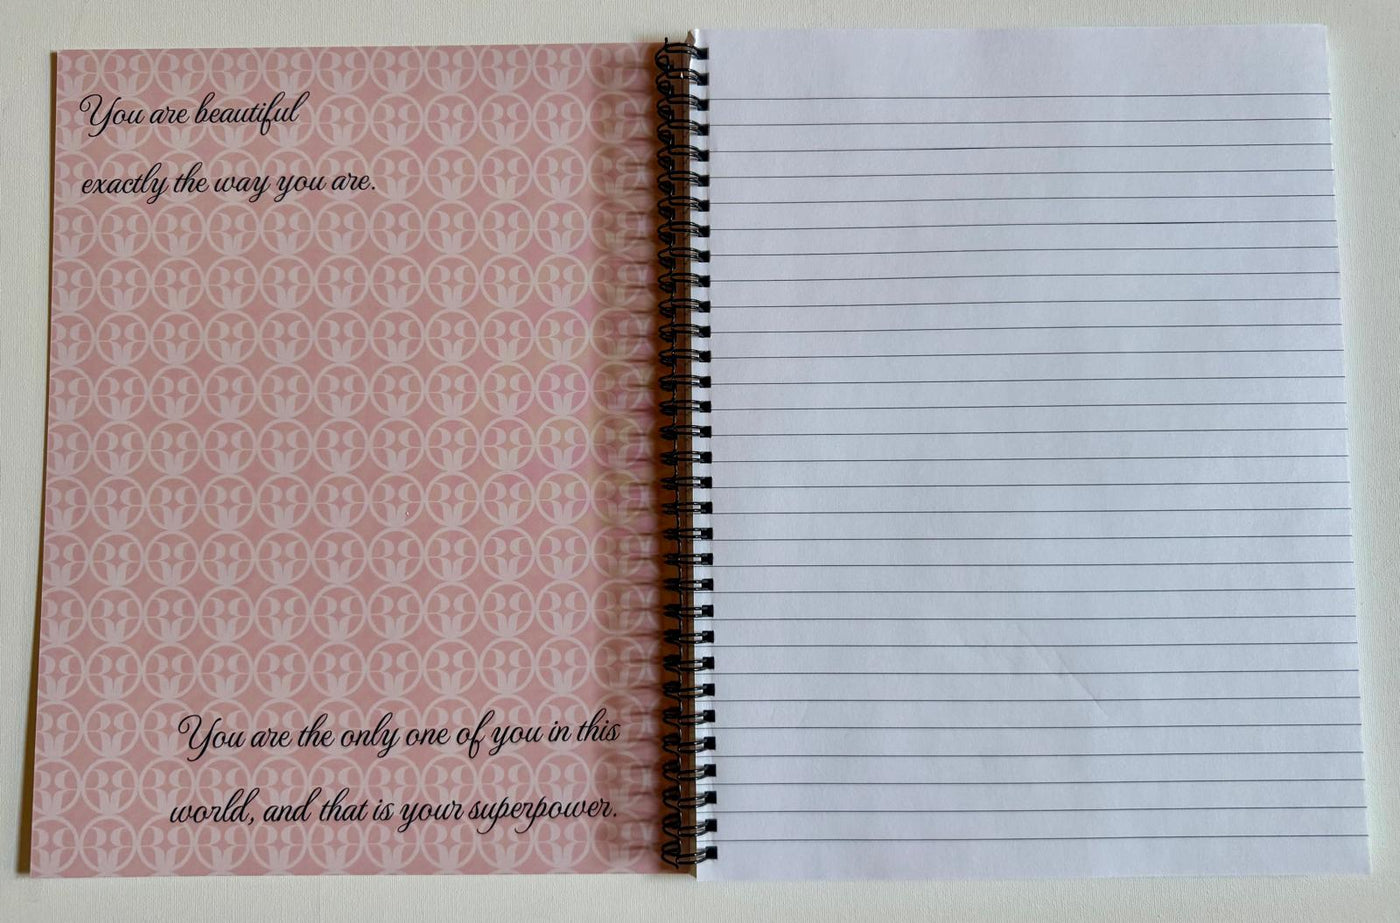 You are beautiful
exactly the way you are.
You are the only one of you in this
world, and that is your superpower.